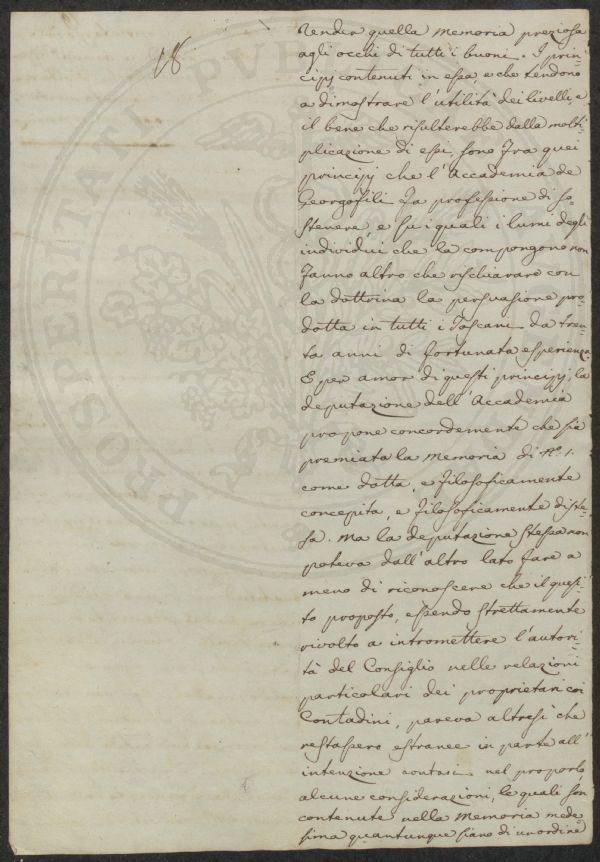 18
render quella Memoria preziosa
agli occhi di tutti i buoni. I prin-
cipj contenuti in essa, e che tendono
a dimostrare l'utilità dei livelli, e
il bene che risulterebbe dalla molti-
plicazione di essi, sono fra quei
principj che l'Accademia de
Georgofili fa professione di so-
stenere, e su i quali i lumi degli
individui che la compongono non
fanno altro che rischiarare con
la dottrina la persuasione pro-
dotta in tutti i Toscani da tren-
ta anni di fortunata esperienza.
E per amor di questi principj, la
deputazione dell'Accademia
propone concordemente che sia
premiata la Memoria di N.° 1.
come dotta, e filosoficamente
concepita, e filosoficamente diste-
sa. Ma la deputazione stessa non
poteva dall'altro lato fare a
meno di riconoscere che il quesi-
to proposto, essendo strettamente
rivolto a intromettere l'autori-
tà del Consiglio nelle relazioni
particolari dei proprietari coi
Contadini, pareva altresì che
restassero estranee in parte all'
intenzione nel proporlo
alcune considerazioni, le quali son
contenute nella Memoria mede-
sima quantunque siano di un ordine
PROSPERITATI PVBLICAE